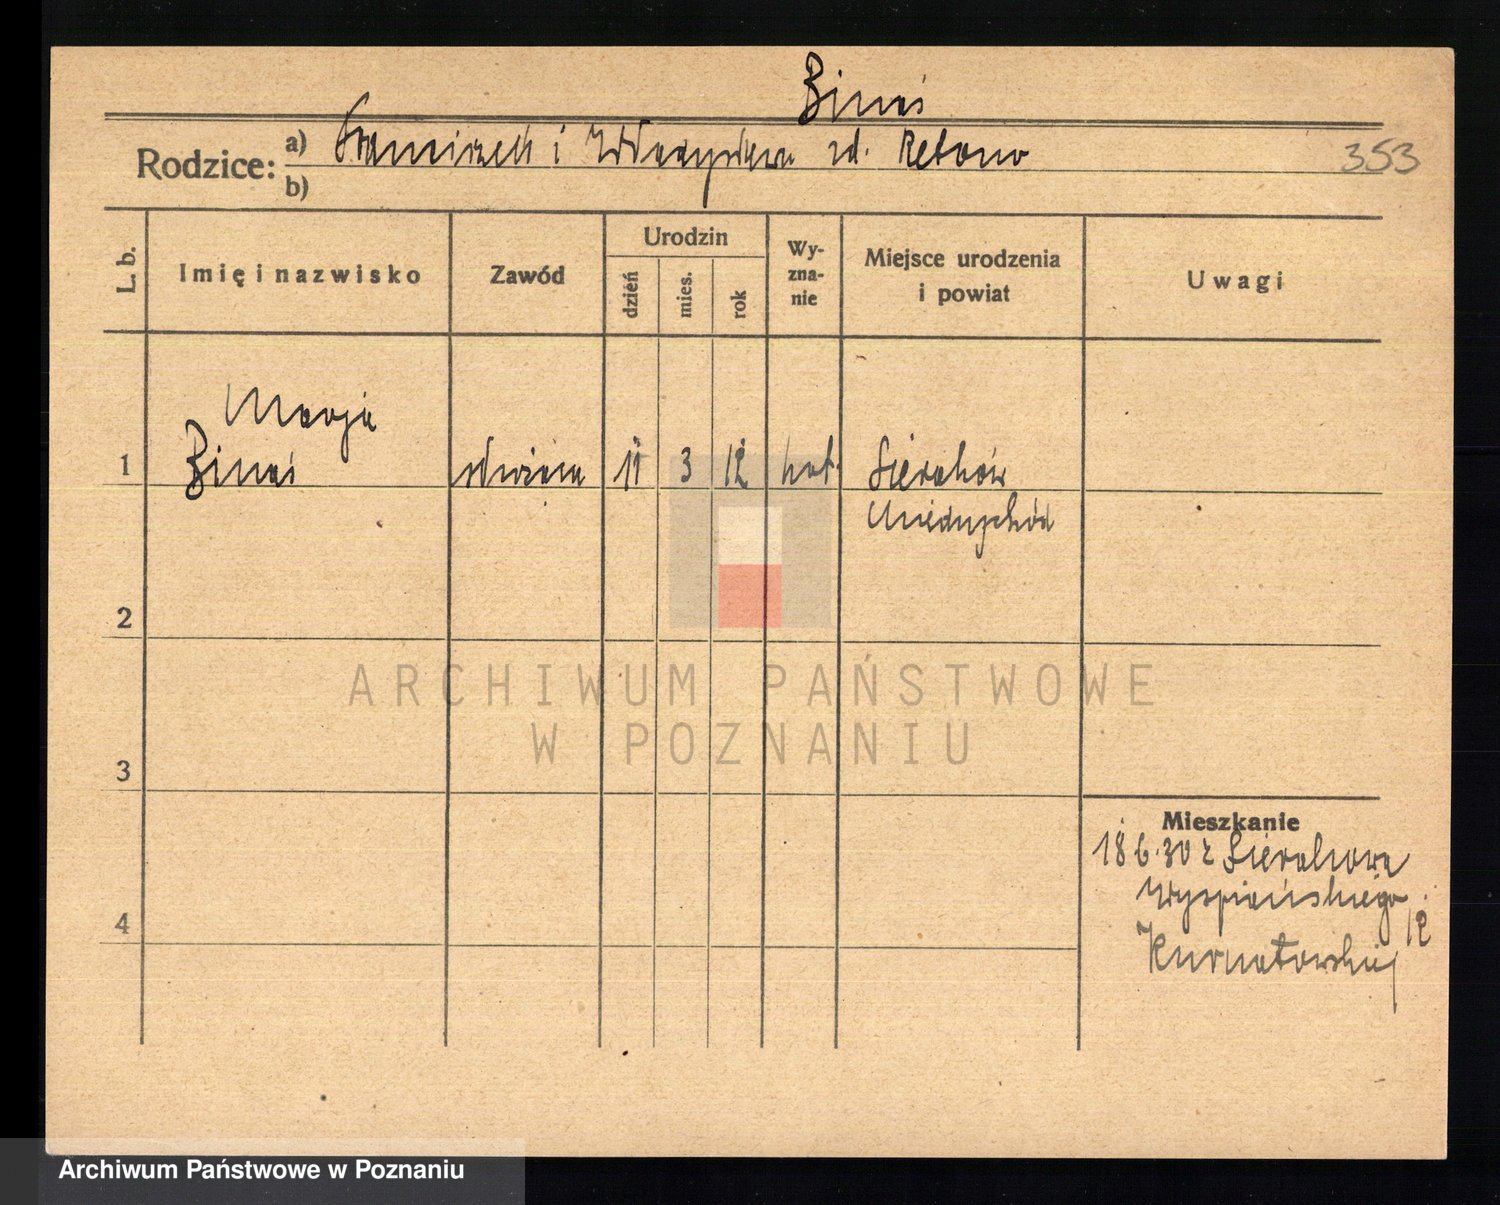 Binaś
Rodzice: a) Franciszek i Władysława zd. Retana
b)
353
L. b.
Imię i nazwisko
Zawód
Urodzin
dzień
mies.
rok
Wy-
zna-
nie
Miejsce urodzenia
i powiat
Uwagi
Marja
1 Binaś służąca 11 3 12 kat. Sieraków
Międzychód
2
3
4
Mieszkanie
18 6.30 z Sierakowa
Wyspiańskiego 12
Kurnatowskiej
ARCHIWUM PAŃSTWOWE
W POZNANIU
Archiwum Państwowe w Poznaniu